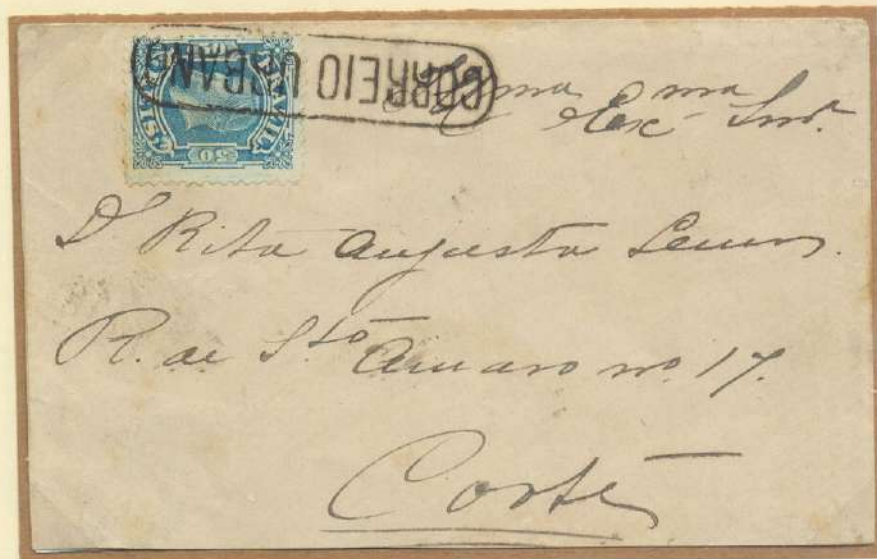 CORREIO URBANO
BRAZIL
50
Illma Exma Snra.
Da Rita Augusta Lemos.
R. de Sto Amaro no 17.
Corte